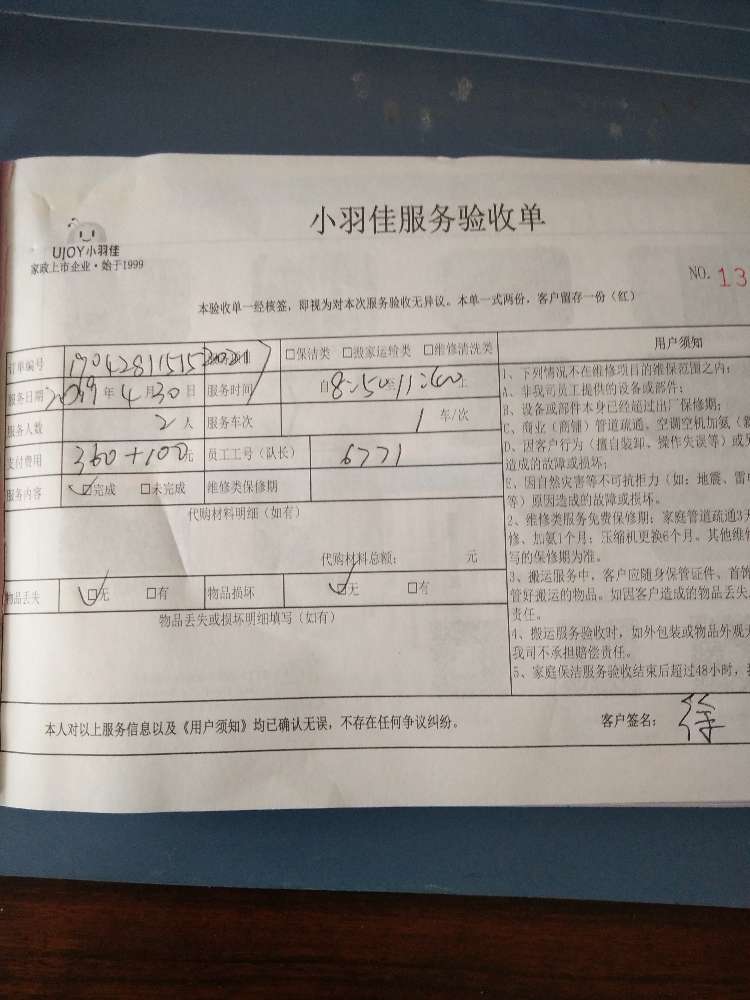 小羽佳服务验收单
UJOY小羽佳
家政上市企业·始于1999
NO. 13
本验收单一经核签，即视为对本次服务验收无异议。本单一式两份，客户留存一份（红）
订单编号 □保洁类 □搬家运输类 □维修清洗类
服务日期 2019 年 4 月 30 日 服务时间 自 8:50 至 11:40 止
服务人数 2 人 服务车次 1 车/次
支付费用 360+100 元 员工工号（队长） 6771
服务内容 ☑完成 □未完成 维修类保修期
代购材料明细（如有）
代购材料总额： 元
物品丢失 ☑无 □有 物品损坏 ☑无 □有
物品丢失或损坏明细填写（如有）
用户须知
1、下列情况不在维修项目的维保范围之内：
A、非我司员工提供的设备或部件；
B、设备或部件本身已经超过出厂保修期；
C、商业（商铺）管道疏通、空调空机加氨（
D、因客户行为（擅自装卸、操作失误等）或
造成的故障或损坏；
E、因自然灾害等不可抗拒力（如：地震、雷
等）原因造成的故障或损坏。
2、维修类服务免费保修期：家庭管道疏通3天
修、加氨1个月；压缩机更换6个月。其他维
写的保修期为准。
3、搬运服务中，客户应随身保管证件、首饰
管好搬运的物品。如因客户造成的物品丢失
责任。
4、搬运服务验收时，如外包装或物品外观
我司不承担赔偿责任。
5、家庭保洁服务验收结束后超过48小时，
本人对以上服务信息以及《用户须知》均已确认无误，不存在任何争议纠纷。 客户签名： 徐